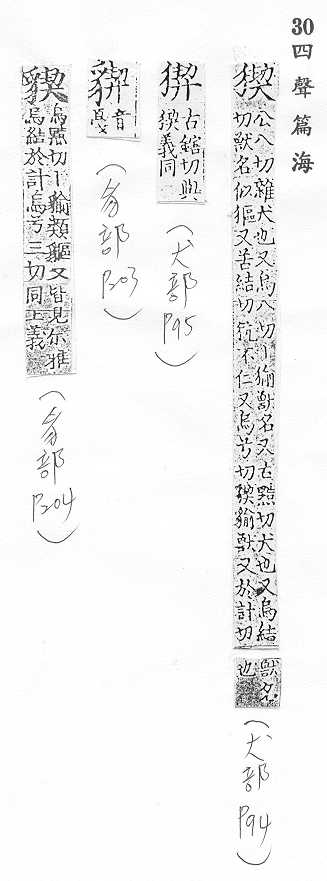 30 四聲篇海
猰
公八切雜犬也又烏八切丨㺄獸名又古黠切犬也又烏結
切獸名似貙又苦結切㹤不仁又烏兮切猰貐獸又於計切
獸名
也
(犬部 P94)
猰
古鎋切與
猰義同
(犬部 P95)
音
戛
(豸部 P203)
貏
烏黠切丨貐類貙又皆見尒雅
烏結於計烏兮三切同上義
(豸部 P204)